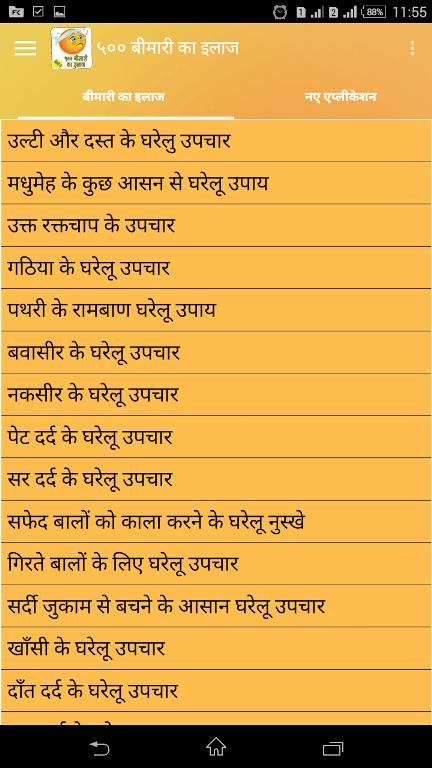 88% 11:55
५०० बीमारी का इलाज
५०० बीमारी
का इलाज
बीमारी का इलाज नए एप्लीकेशन
उल्टी और दस्त के घरेलु उपचार
मधुमेह के कुछ आसन से घरेलू उपाय
उक्त रक्तचाप के उपचार
गठिया के घरेलू उपचार
पथरी के रामबाण घरेलू उपाय
बवासीर के घरेलू उपचार
नकसीर के घरेलू उपचार
पेट दर्द के घरेलू उपचार
सर दर्द के घरेलू उपचार
सफेद बालों को काला करने के घरेलू नुस्खे
गिरते बालों के लिए घरेलू उपचार
सर्दी जुकाम से बचने के आसान घरेलू उपचार
खाँसी के घरेलू उपचार
दाँत दर्द के घरेलू उपचार